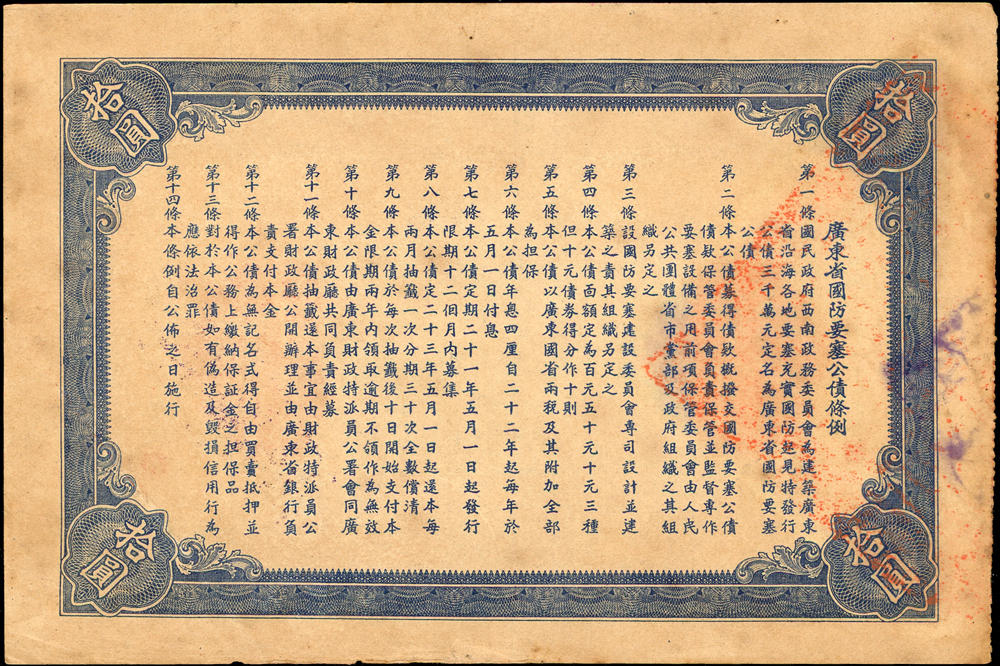 廣東省國防要塞公債條例
第一條國民政府西南政務委員會為建築廣東
省沿海各地要塞充實國防起見特發行
公債三千萬元定名為廣東省國防要塞
公債
第二條本公債募得債款概撥交國防要塞公債
債款保管委員會負責保管並監督專作
要塞設備之用前項保管委員會由人民
公共團體省市黨部及政府組織之其組
織另定之
第三條設國防要塞建設委員會專司設計並建
築之責其組織另定之
第四條本公債面額定為百元五十元十元三種
但十元債券得分作十則
第五條本公債以廣東國省兩稅及其附加全部
為担保
第六條本公債年息四厘自二十二年起每年於
五月一日付息
第七條本公債定期二十一年五月一日起發行
限期十二個月內募集
第八條本公債定二十三年五月一日起還本每
兩月抽籤一次分期三十次全數償清
第九條本公債於每次抽籤後十日開始支付本
金限期兩年內領取逾期不領作為無效
第十條本公債由廣東財政特派員公署會同廣
東財政廳共同負責經募
第十一條本公債抽籤還本事宜由財政特派員公
署財政廳公開辦理並由廣東省銀行負
責支付本金
第十二條本公債為無記名式得自由買賣抵押並
得作公務上繳納保証金之担保品
第十三條對於本公債如有偽造及毀損信用行為
應依法治罪
第十四條本條例自公佈之日施行
拾圓
拾圓
拾圓
拾圓